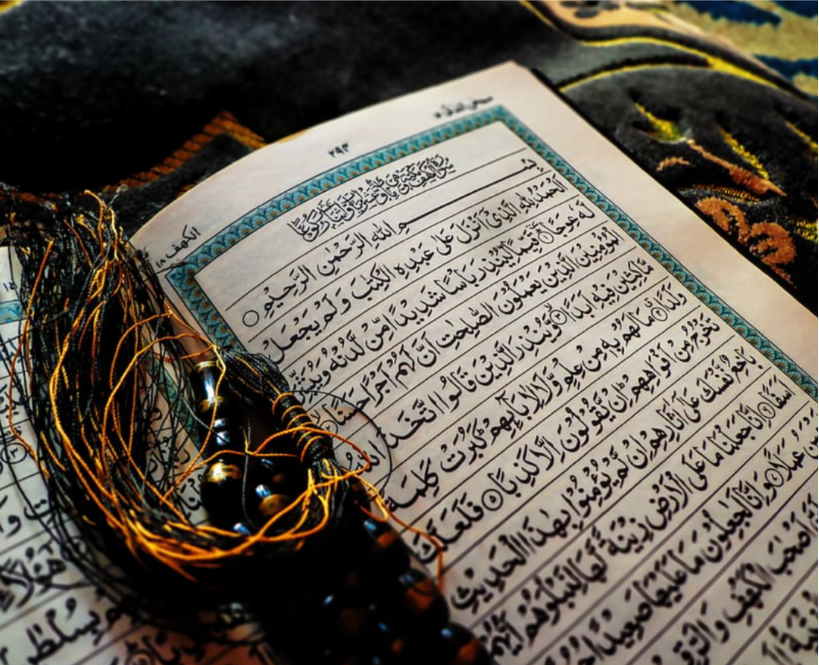 ٢٩٣
الكهف ١٨
بِسْمِ اللّٰهِ الرَّحْمٰنِ الرَّحِيْمِ
اَلْحَمْدُ لِلّٰهِ الَّذِيْٓ اَنْزَلَ عَلٰى عَبْدِهِ الْكِتٰبَ وَلَمْ يَجْعَلْ
لَّهٗ عِوَجًا ۝ قَيِّمًا لِّيُنْذِرَ بَاْسًا شَدِيْدًا مِّنْ لَّدُنْهُ وَيُبَشِّرَ
الْمُؤْمِنِيْنَ الَّذِيْنَ يَعْمَلُوْنَ الصّٰلِحٰتِ اَنَّ لَهُمْ اَجْرًا حَسَنًا
مَّاكِثِيْنَ فِيْهِ اَبَدًا ۝ وَّيُنْذِرَ الَّذِيْنَ قَالُوا اتَّخَذَ
وَلَدًا ۝ مَا لَهُمْ بِهٖ مِنْ عِلْمٍ وَّلَا لِاٰبَآئِهِمْ كَبُرَتْ كَلِمَةً
تَخْرُجُ مِنْ اَفْوَاهِهِمْ اِنْ يَّقُوْلُوْنَ اِلَّا كَذِبًا ۝ فَلَعَلَّكَ
بَاخِعٌ نَّفْسَكَ عَلٰٓى اٰثَارِهِمْ اِنْ لَّمْ يُؤْمِنُوْا بِهٰذَا الْحَدِيْثِ
اَسَفًا ۝ اِنَّا جَعَلْنَا مَا عَلَى الْاَرْضِ زِيْنَةً لَّهَا لِنَبْلُوَهُمْ اَيُّهُمْ
عَمَلًا ۝ وَاِنَّا لَجٰعِلُوْنَ مَا عَلَيْهَا صَعِيْدًا
اَصْحٰبَ الْكَهْفِ وَالرَّقِيْمِ
هٰٓؤُلَآءِ
بِسُلْطٰنٍ